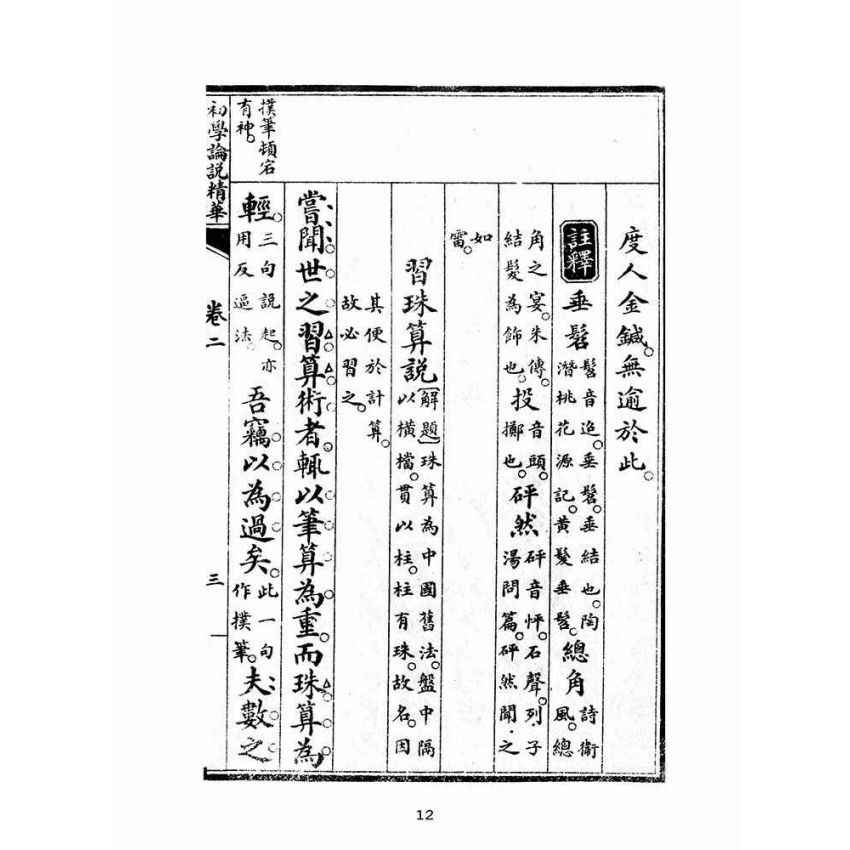 度人金鍼。無逾於此。
註釋 垂髫 髫音迢。垂髫。垂結也。陶潛桃花源記。黃髮垂髫。 總角 詩衛風。總
角之宴。朱傳。結髮為飾也。 投 音頭。擲也。 砰然 砰音怦。石聲。列子湯問篇。砰然聞之
如雷。
習珠算説 [解題]珠算為中國舊法。盤中隔以橫檔。貫以柱。柱有珠。故名。因
其便於計算。故必習之。
嘗聞世之習算術者。輒以筆算為重。而珠算為
撲筆頓宕有神。
輕。三句說起。亦用反逼法。吾竊以為過矣。此一句作撲筆。夫數之
初學論説精華 卷二 三
12